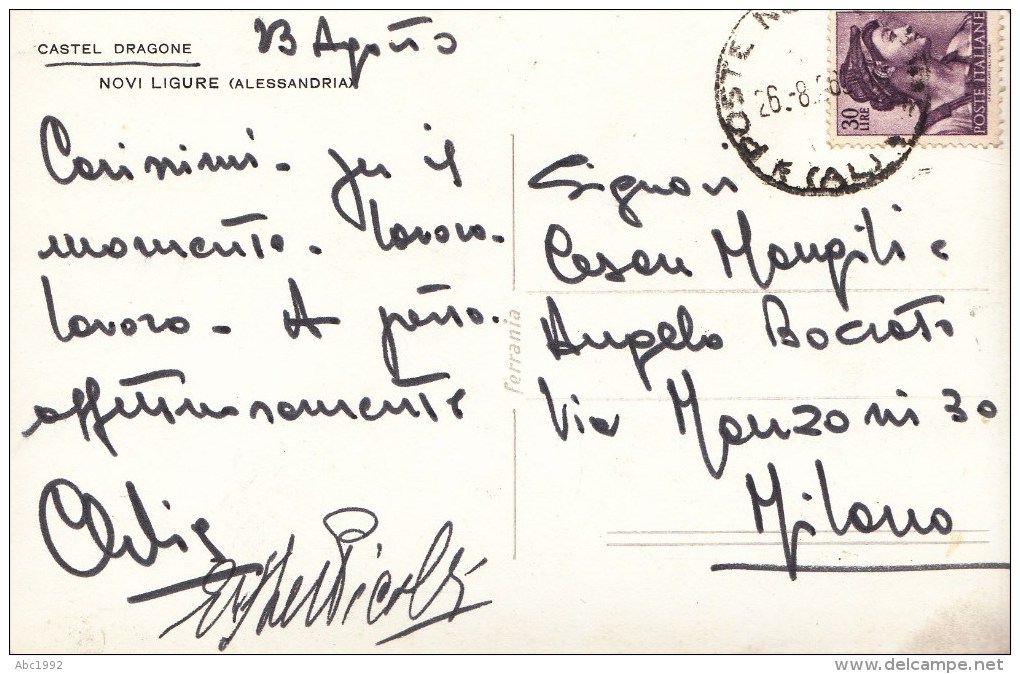 CASTEL DRAGONE
NOVI LIGURE (ALESSANDRIA)
Agosto
Carissimi - per il
momento - lavoro -
lavoro - A presto.
affettuosamente
Signori
Cesare Mangili e
Angelo
Via Manzoni 30
Milano
ferrania
POSTE
26.-8.
(AL)
30
LIRE
POSTE ITALIANE
Abc1992
www.delcampe.net